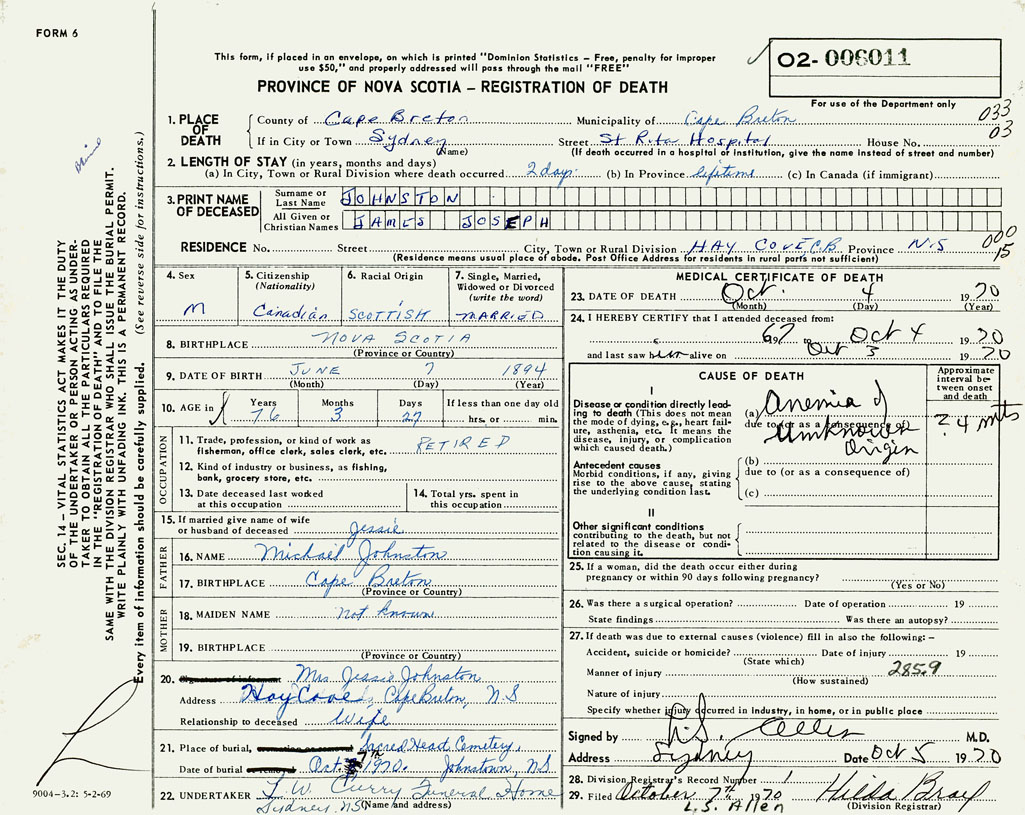 FORM 6
This form, if placed in an envelope, on which is printed "Dominion Statistics – Free, penalty for improper
use $50," and properly addressed will pass through the mail "FREE"
02- 006011
For use of the Department only
PROVINCE OF NOVA SCOTIA – REGISTRATION OF DEATH
033
03
1. PLACE OF DEATH
County of Cape Breton Municipality of Cape Breton
If in City or Town Sydney Street St Rita Hospital House No.
(Name) (If death occurred in a hospital of institution, give the name instead of street and number)
2. LENGTH OF STAY (in years, months and days)
(a) In City, Town or Rural Division where death occurred 2 days (b) In Province lifetime (c) In Canada (if immigrant)
3. PRINT NAME OF DECEASED
Surname or Last Name JOHNSTON
All Given or Christian Names JAMES JOSEPH
RESIDENCE No. Street City, Town or Rural Division HAY COVE C.B. Province N.S
000
15
(Residence means usual place of abode. Post Office Address for residents in rural parts not sufficient)
4. Sex M
5. Citizenship (Nationality) Canadian
6. Racial Origin SCOTTISH
7. Single, Married, Widowed or Divorced (write the word) MARRIED
8. BIRTHPLACE NOVA SCOTIA
(Province or Country)
9. DATE OF BIRTH JUNE 7 1894
(Month) (Day) (Year)
10. AGE in Years 76 Months 3 Days 27 If less than one day old
hrs. or min.
OCCUPATION
11. Trade, profession, or kind of work as
fisherman, office clerk, sales clerk, etc. RETIRED
12. Kind of industry or business, as fishing,
bank, grocery store, etc.
13. Date deceased last worked
at this occupation
14. Total yrs. spent in
this occupation
15. If married give name of wife
or husband of deceased Jessie
FATHER
16. NAME Michael Johnston
17. BIRTHPLACE Cape Breton
(Province or Country)
MOTHER
18. MAIDEN NAME Not known
19. BIRTHPLACE
(Province or Country)
20. Mrs Jessie Johnston
Address Hay Cove, Cape Breton, N.S
Relationship to deceased Wife
21. Place of burial, Sacred Heart Cemetery,
Date of burial Oct. 7th 1970. Johnstown, N.S
22. UNDERTAKER T. W. Curry Funeral Home
Sydney, NS (Name and address)
MEDICAL CERTIFICATE OF DEATH
23. DATE OF DEATH Oct. 4 1970
(Month) (Day) (Year)
24. I HEREBY CERTIFY that I attended deceased from:
67 Oct 4 1970
and last saw him alive on Oct 3 1970
CAUSE OF DEATH
Approximate interval between onset and death
I
Disease or condition directly leading to death (This does not mean
the mode of dying, e.g., heart failure, asthenia, etc. It means the
disease, injury, or complication
which caused death.)
(a) Anemia of
due to (or as a consequence of)
Unknown
Origin
? 4 mts
Antecedent causes
Morbid conditions, if any, giving
rise to the above cause, stating
the underlying condition last.
(b)
due to (or as a consequence of)
(c)
II
Other significant conditions
contributing to the death, but not
related to the disease or condition causing it.
25. If a woman, did the death occur either during
pregnancy or within 90 days following pregnancy?
(Yes or No)
26. Was there a surgical operation? Date of operation 19
State findings Was there an autopsy?
27. If death was due to external causes (violence) fill in also the following: –
Accident, suicide or homicide? Date of injury 19
(State which)
Manner of injury 285.9
(How sustained)
Nature of injury
Specify whether injury occurred in industry, in home, or in public place
Signed by L.S. Allen M.D.
Address Sydney Date Oct 5 1970
28. Division Registrar's Record Number 1
29. Filed October 7th 1970 Hilda Bray
L.S. Allen (Division Registrar)
SEC. 14 – VITAL STATISTICS ACT MAKES IT THE DUTY
OF THE UNDERTAKER OR PERSON ACTING AS UNDER-
TAKER TO OBTAIN ALL THE PARTICULARS REQUIRED
IN THE "REGISTRATION OF DEATH" AND TO FILE THE
SAME WITH THE DIVISION REGISTRAR WHO SHALL ISSUE THE BURIAL PERMIT.
WRITE PLAINLY WITH UNFADING INK. THIS IS A PERMANENT RECORD.
Every item of information should be carefully supplied. (See reverse side for instructions.)
9004-3.2: 5-2-69